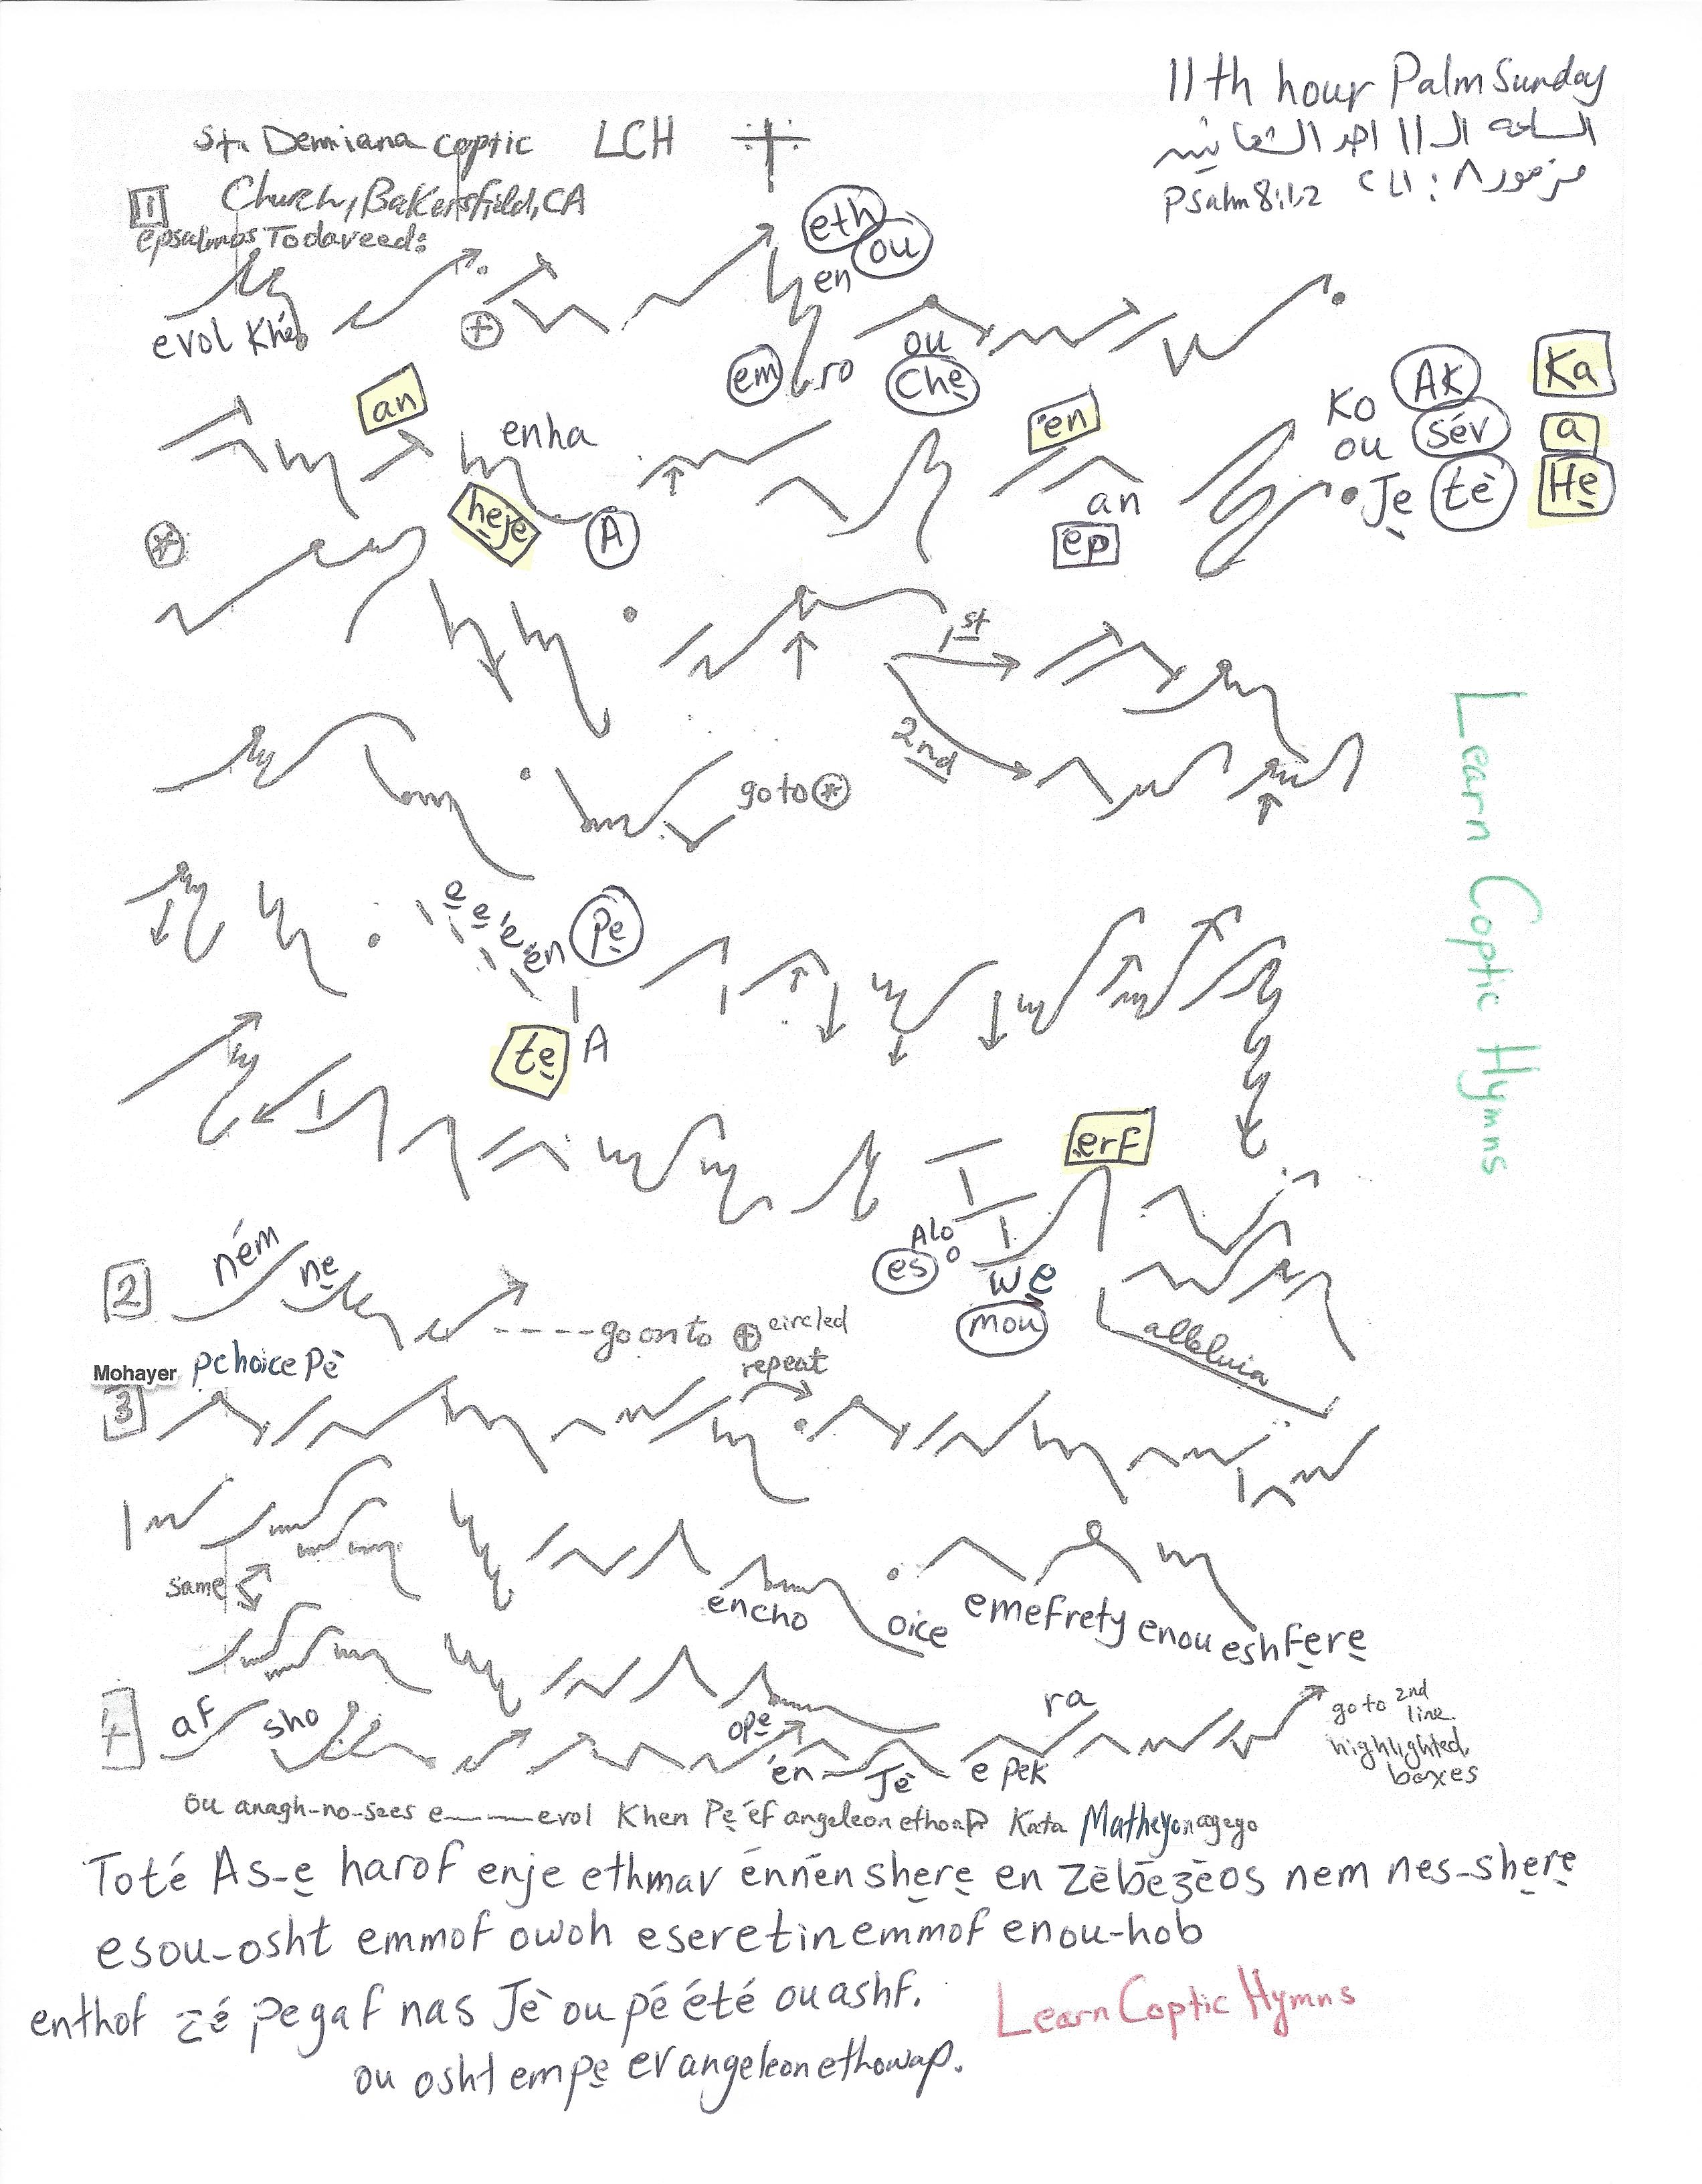 11th hour Palm Sunday
الساعه ال 11 احد الشعانين
مزمور 8 : 1،2
Psalm 8:1,2
St. Demiana coptic LCH
Church, Bakersfield, CA
1
epsalmos Todaveed:
evol Khé
eth
ou
en
em ro
ou
che
an
enha
heje
A
en
an
ep
Ko AK Ka
ou sév a
Je tè He
1st
2nd
go to
e e é en pe
te A
erf
Alo
es o
we
mou
alleluia
2 ném ne
----go on to circled
repeat
Mohayer pchoice Pè
3
same
encho oice emefrety enou eshfere
4 af sho
ope
én Jè e pek
ra
go to 2nd
line
highlighted
boxes
ou anagh-no-sees e——evol Khen Pe éf angeleon ethoap Kata Matheyonagego
Toté As-e harof enje ethmav énnén shere en Zebezeos nem nes-shere
esou-osht emmof owoh eseretinemmof enou-hob
enthof zé pegaf nas Jè ou pé été ouashf.
ou osht empe evangeleon ethowap.
Learn Coptic Hymns
Learn Coptic Hymns